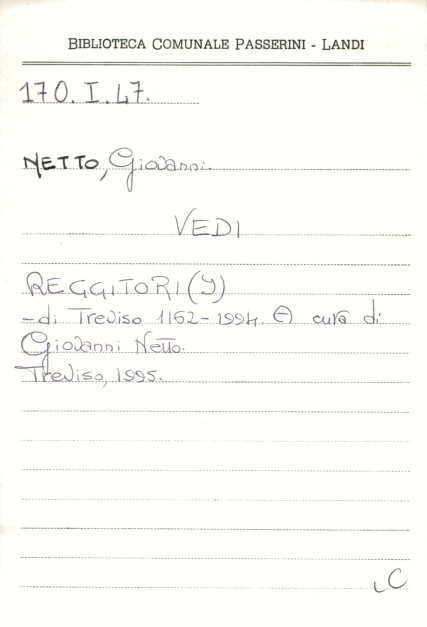 BIBLIOTECA COMUNALE PASSERINI - LANDI
170. I. 47.
NETTO, Giovanni.
VEDI
REGGITORI (I)
- di Treviso 1162-1994. A cura di
Giovanni Netto.
Treviso, 1995.